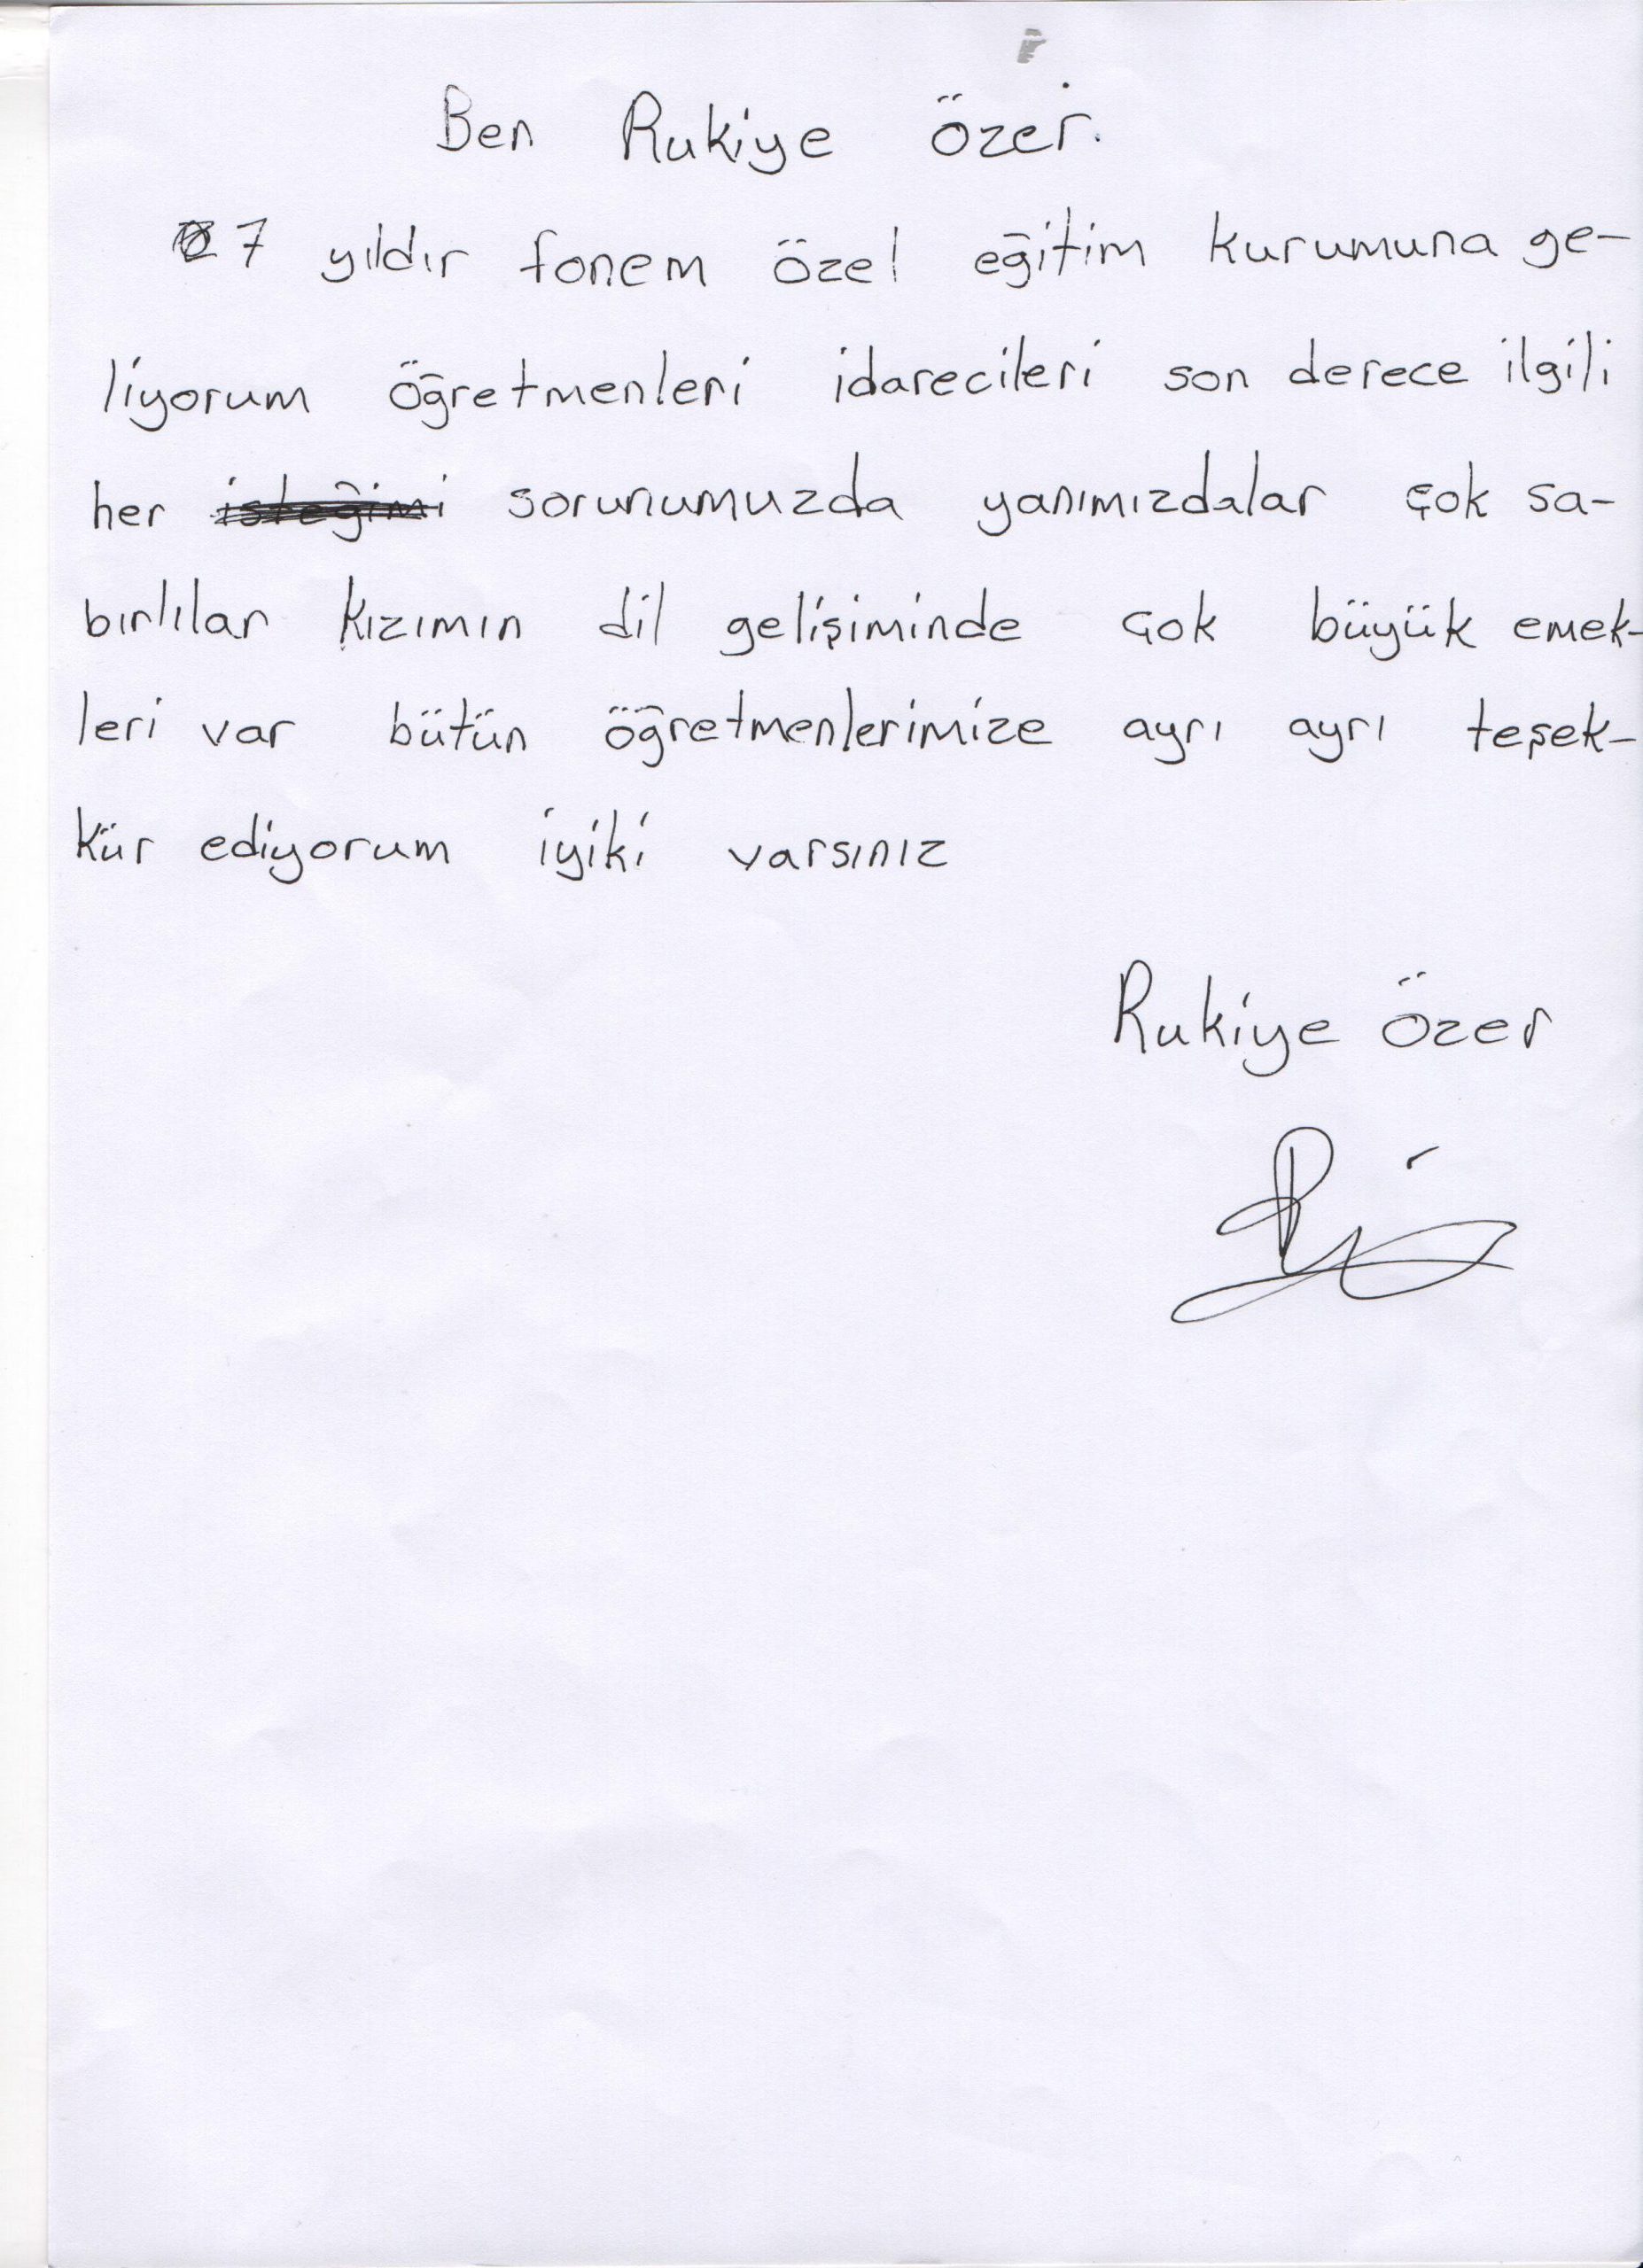 Ben Rukiye Özer.
7 yıldır fonem özel eğitim kurumuna ge-
liyorum öğretmenleri idarecileri son derece ilgili
her isteğimi sorunumuzda yanımızdalar çok sa-
bırlılar kızımın dil gelişiminde çok büyük emek-
leri var bütün öğretmenlerimize ayrı ayrı teşek-
kür ediyorum iyiki varsınız
Rukiye Özer